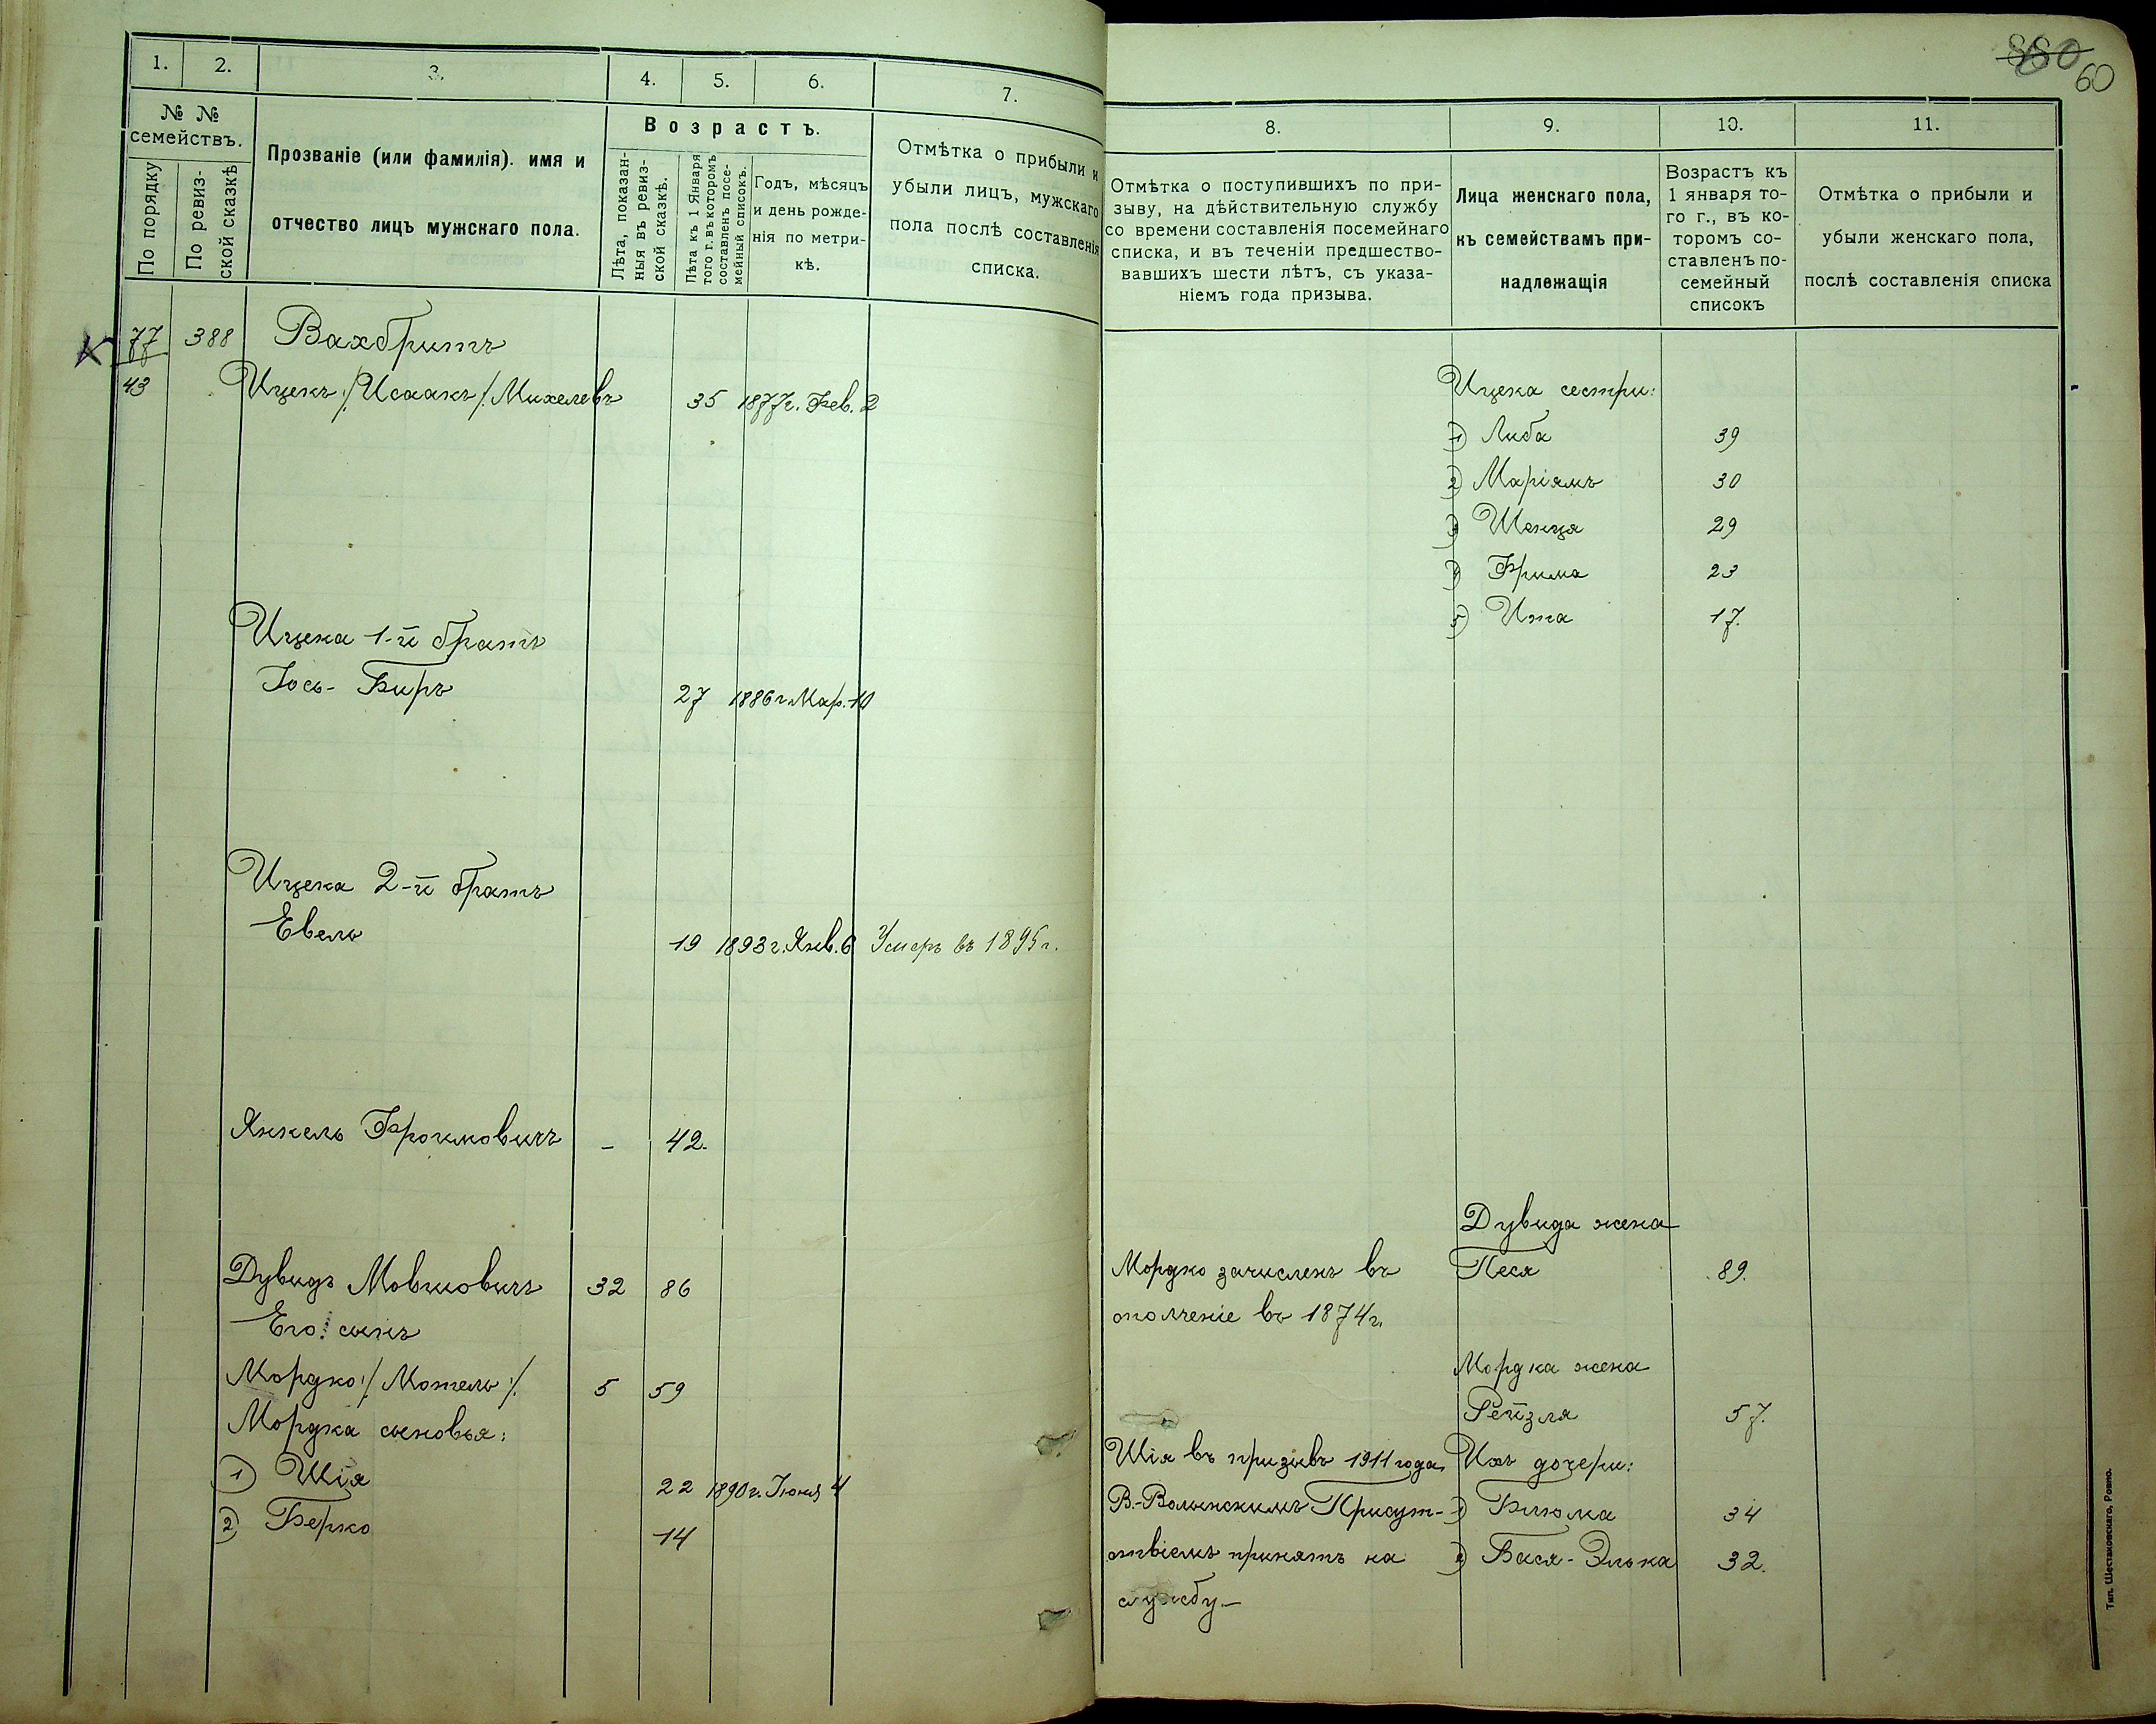 1. 2. 3. 4. 5. 6. 7.
№ № семействъ.
По порядку
По ревизской сказкѣ
Прозваніе (или фамилія). имя и
отчество лицъ мужскаго пола.
Возрастъ.
Лѣта, показан-
ныя въ ревиз-
ской сказкѣ.
Лѣта къ 1 Января
того г. въ которомъ
составленъ посе-
мейный списокъ.
Годъ, мѣсяцъ
и день рожде-
нія по метри-
кѣ.
Отмѣтка о прибыли и
убыли лицъ, мужскаго
пола послѣ составленія
списка.
77 388 Вахбритъ
43 Ицекъ /Исаакъ/ Михелевъ 35 1877г. Фев. 2
Ицека 1-й братъ
Іось-Биръ 27 1886г Мар. 10
Ицека 2-й братъ
Евель 19 1893г. Янв. 6 Умеръ въ 1895г.
Янкель Фроимовичъ - 42.
Дувидъ Мовшовичъ 32 86
Его сынъ
Мордко /Мотель/ 5 59
Мордка сыновья:
1) Шія 22 1890г. Іюня 4
2) Берко 14
880 60
8. 9. 10. 11.
Отмѣтка о поступившихъ по при-
зыву, на дѣйствительную службу
со времени составленія посемейнаго
списка, и въ теченіи предшество-
вавшихъ шести лѣтъ, съ указа-
ніемъ года призыва.
Лица женскаго пола,
къ семействамъ при-
надлежащія
Возрастъ къ
1 января то-
го г., въ ко-
торомъ со-
ставленъ по-
семейный
списокъ
Отмѣтка о прибыли и
убыли женскаго пола,
послѣ составленія списка
Ицека сестры:
1) Либа 39
2) Маріямъ 30
3) Шенця 29
4) Фрима 23
5) Ита 17.
Дувида жена
Мордко зачисленъ въ Песя 89.
ополченіе въ 1874г.
Мордка жена
Рейзля 57.
Шія въ призывъ 1911 года, Ихъ дочери:
В.-Волынскимъ Присут- 1) Блюма 34
ствіемъ принятъ на 2) Бася-Элька 32.
службу.—
Тип. Шестаковскаго, Ровно.